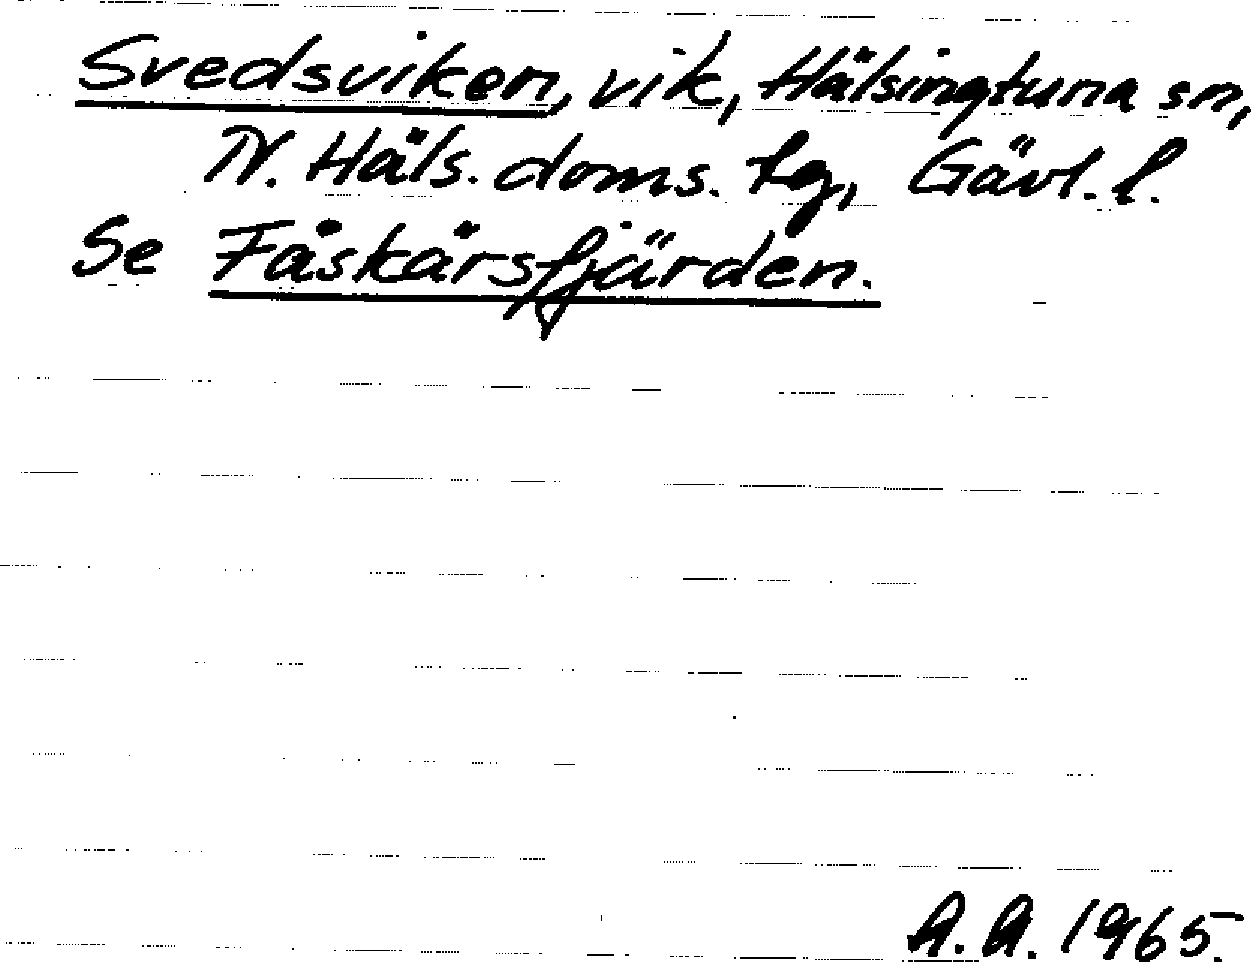 Svedsviken, vik, Hälsingtuna sn,
N. Häls. doms. tg, Gävl. l.
Se Fäskärsfjärden.
A.A. 1965.